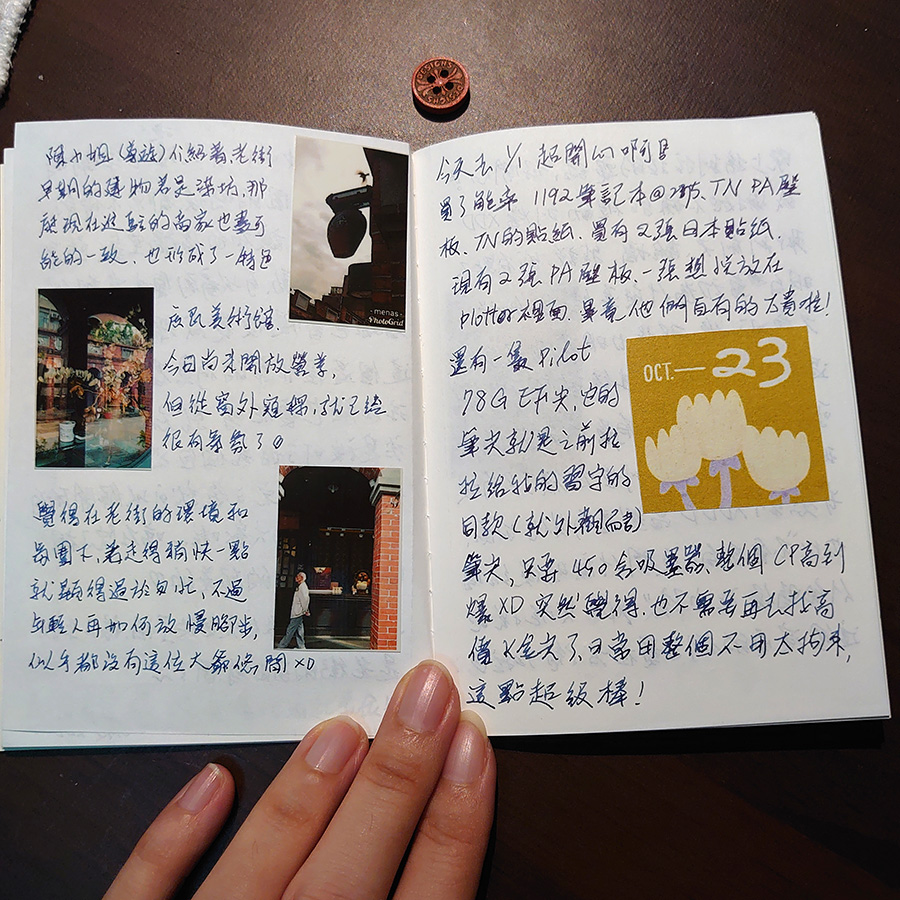 DESIGNS
陳小姐(導遊)介紹著老街
早期的建物若是染坊,那
麼現在進駐的商家也盡可
能的一致,也形成了一特色
- menas -
PhotoGrid
庶民美術館,
今日尚未開放營業,
但從窗外窺探,就已經
很有氣氛了。
覺得在老街的環境和
氛圍下,若走得稍快一點
就顯得過於匆忙,不過
年輕人再如何放慢腳步,
似乎都沒有這位大爺悠閒XD
今天去 超開心啊
買了能率 1192筆記本@、TN PA墊
板、TN的貼紙,買有2張日本貼紙,
現有2張PA墊板,一張想說放在
plotter裡面,畢竟他們自有的太貴啦!
還有一隻 Pilot
78G EF尖,它的
筆尖就是之前拉
拉給我的習字的
同款(就外觀而言)
筆尖,只要 450含吸墨器,整個 CP高到
爆XD 突然覺得,也不需要再去找高
價K金尖了,日常用整個不用太拘束,
這點超級棒!
OCT.—23